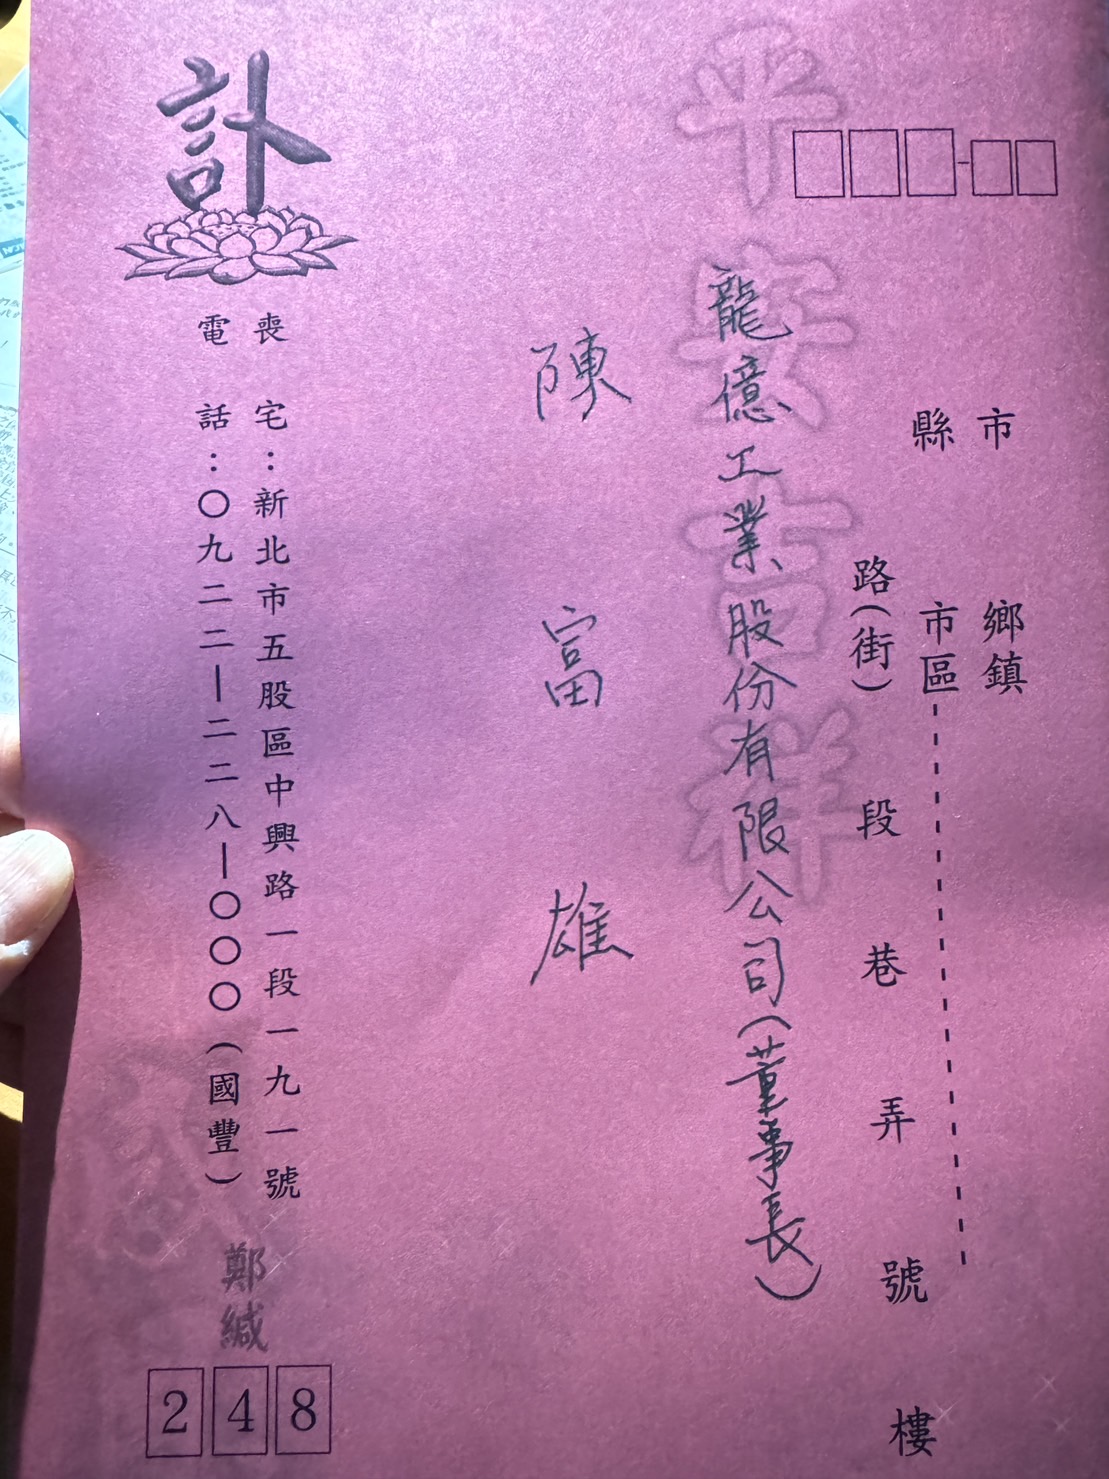 平安吉祥
市
縣
鄉鎮
市區
路(街)
段
巷
弄
號
樓
龍億工業股份有限公司(董事長)
陳富雄
訃
喪宅:新北市五股區中興路一段一九一號
電話:〇九二二—二二八—〇〇〇(國豐)
鄭緘
248